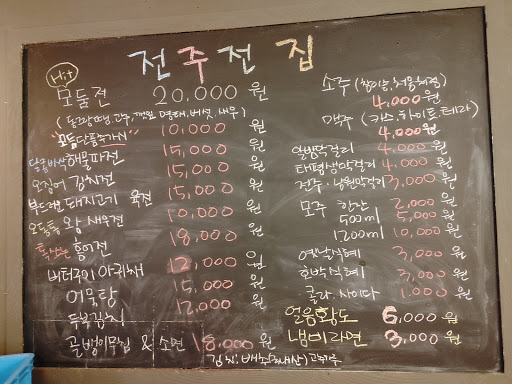 Hit
전주전집
모둠전 20,000원
(동그랑땡, 고추, 깻잎, 명태, 버섯, 새우)
10,000원
달콤바삭 해물파전 15,000원
오징어 김치전 15,000원
부드러운 돼지고기 육전 15,000원
오동통 왕새우전 10,000원
톡쏘는 홍어전 18,000원
버터구이 아귀채 12,000원
어묵탕 15,000원
두부김치 12,000원
골뱅이무침 & 소면 18,000원
김치: 배추(국내산) 고춧가루
소주 (참이슬, 처음처럼)
4,000원
맥주 (카스, 하이트, 테라)
4,000원
알밤막걸리 4,000원
태평생막걸리 4,000원
전주·남원막걸리 3,000원
모주 한잔 2,000원
500ml 5,000원
1200ml 10,000원
옛날식혜 3,000원
호박식혜 3,000원
콜라. 사이다 1,000원
얼음황도 6,000원
냄비라면 3,000원